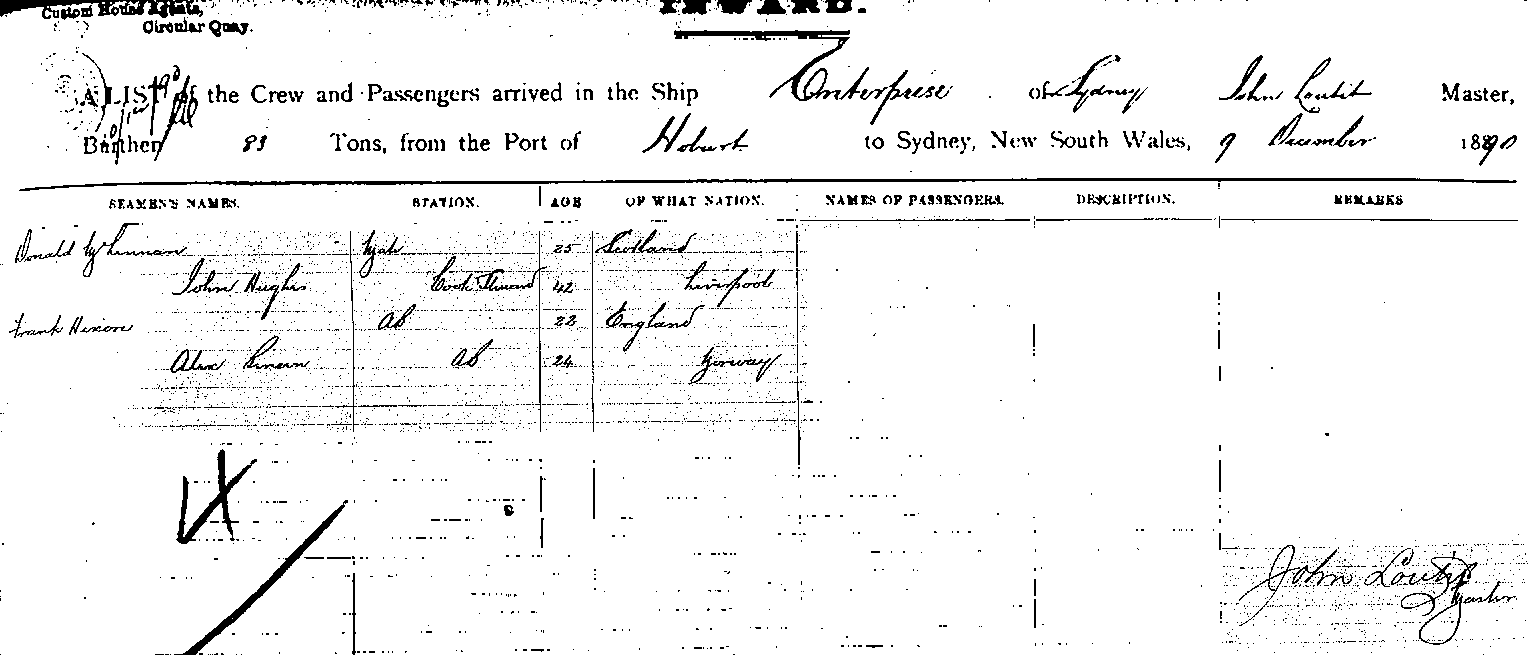 Custom House Agents,
Circular Quay.
INWARD.
A LIST of the Crew and Passengers arrived in the Ship Enterprise of Sydney John Loutit Master,
Burthen 83 Tons, from the Port of Hobart to Sydney, New South Wales, 9 December 1890
SEAMEN'S NAMES. STATION. AGE OF WHAT NATION. NAMES OF PASSENGERS. DESCRIPTION. REMARKS
Donald Mate 25 Scotland
John Hughes Cook Steward 42 Liverpool
Frank AB 22 England
Alex AB 24 Norway
4
John Loutit
Master